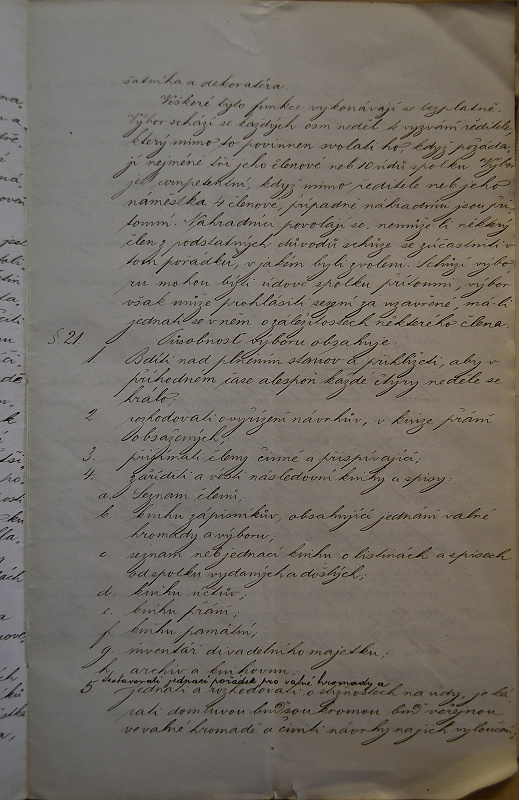 šatníka a dekoratéra.
Veškeré tyto funkce vykonávají se bezplatně.
Výbor schází se každých osm neděl k vyzvání ředitele,
který mimo to povinnen svolati ho, když požáda-
jí nejméně tři jeho členové neb 10 údů spolku. Výbor
jest competentní, když mimo ředitele neb jeho
náměstka 4 členové, případně náhradníci jsou pří-
tomni. Náhradníci povolají se, nemůže-li některý
člen z podstatných důvodů schůze se zúčastniti v
tom pořádku, v jakém byli zvoleni. Schůzi výbo-
ru mohou býti údové spolku přítomni, výbor
však může prohlásiti sezení za uzavřené, má-li
jednati se v něm o záležitostech některého člena.
§ 21. Působnost výboru obsahuje:
1. Bdíti nad plněním stanov a přihlížeti, aby v
příhodném čase alespoň každé čtyry neděle se
hrálo;
2. rozhodovati o vyřízení návrhův, v knize přání
obsažených;
3. přijímati členy činné a přispívající;
4. zaříditi a vésti následovní knihy a spisy:
a. Seznam členů;
b. knihu zápisníkův, obsahující jednání valné
hromady a výboru;
c. seznam neb jednací knihu o listinách a spisech
od spolku vydaných a došlých;
d. knihu účtův;
e. knihu přání;
f. knihu památní;
g. inventář divadelního majetku;
h. archiv a knihovnu;
sestavovati jednací pořádek pro valné hromady a
5. jednati a rozhodovati o stížnostech na údy, je ká-
rati domluvou buď soukromou buď veřejnou
ve valné hromadě a činiti návrhy na jich vyloučení,